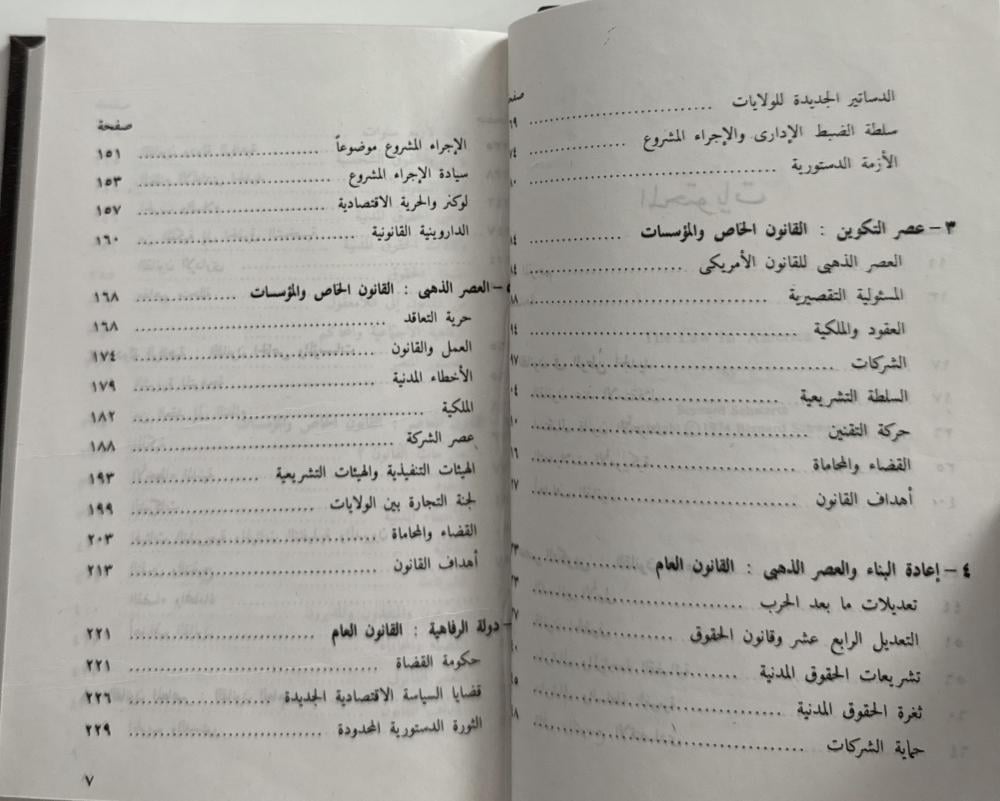 الدساتير الجديدة للولايات
سلطة الضبط الإدارى والإجراء المشروع
الأزمة الدستورية
٣ - عصر التكوين : القانون الخاص والمؤسسات
العصر الذهبى للقانون الأمريكى
المسئولية التقصيرية
العقود والملكية
الشركات
السلطة التشريعية
حركة التقنين
القضاء والمحاماة
أهداف القانون
٤ - إعادة البناء والعصر الذهبى : القانون العام
تعديلات ما بعد الحرب
التعديل الرابع عشر وقانون الحقوق
تشريعات الحقوق المدنية
ثغرة الحقوق المدنية
حماية الشركات
صفحة
الإجراء المشروع موضوعاً ١٥١
سيادة الإجراء المشروع ١٥٣
لوكنر والحرية الاقتصادية ١٥٧
الداروينية القانونية ١٦٠
- العصر الذهبى : القانون الخاص والمؤسسات ١٦٨
حرية التعاقد ١٦٨
العمل والقانون ١٧٤
الأخطاء المدنية ١٧٩
الملكية ١٨٢
عصر الشركة ١٨٨
الهيئات التنفيذية والهيئات التشريعية ١٩٣
لجنة التجارة بين الولايات ١٩٩
القضاء والمحاماة ٢٠٣
أهداف القانون ٢١٣
- دولة الرفاهية : القانون العام ٢٢١
حكومة القضاة ٢٢١
قضايا السياسة الاقتصادية الجديدة ٢٢٦
الثورة الدستورية المحدودة ٢٢٩
٧